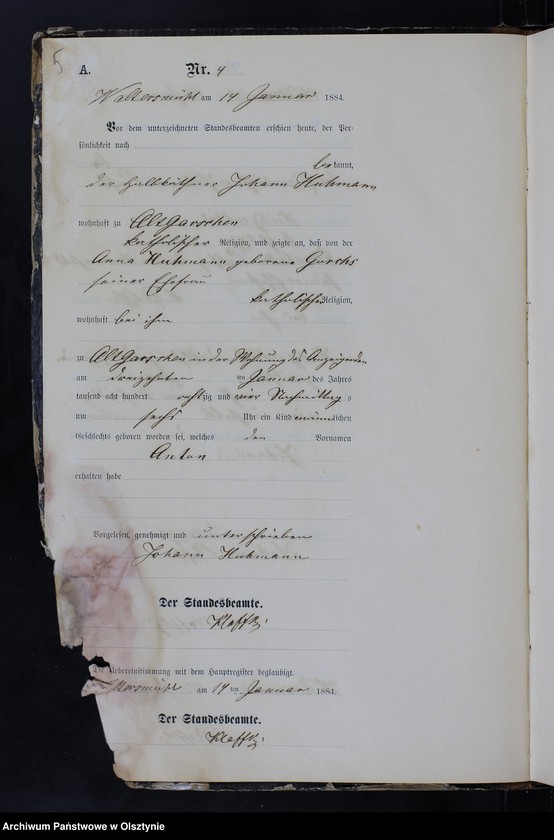 5
A. Nr. 4
Waltersmühl am 14 Januar 1884.
Vor dem unterzeichneten Standesbeamten erschien heute, der Per-
sönlichkeit nach
bekannt,
der Halbkäthner Johann Huhmann
wohnhaft zu AltGarschen
katholischer Religion, und zeigte an, daß von der
Anna Huhmann geborene
seiner Ehefrau
katholischer Religion,
wohnhaft bei ihm
zu AltGarschen in der Wohnung des Anzeigenden
am dreizehnten ten Januar des Jahres
tausend acht hundert achtzig und vier Nachmittags
um sechs Uhr ein Kind männlichen
Geschlechts geboren worden sei, welches den Vornamen
Anton
erhalten habe
Vorgelesen, genehmigt und unterschrieben
Johann Huhmann
Der Standesbeamte.
Die Uebereinstimmung mit dem Hauptregister beglaubigt.
am 14 ten Januar 1884.
Der Standesbeamte.
Archiwum Państwowe w Olsztynie